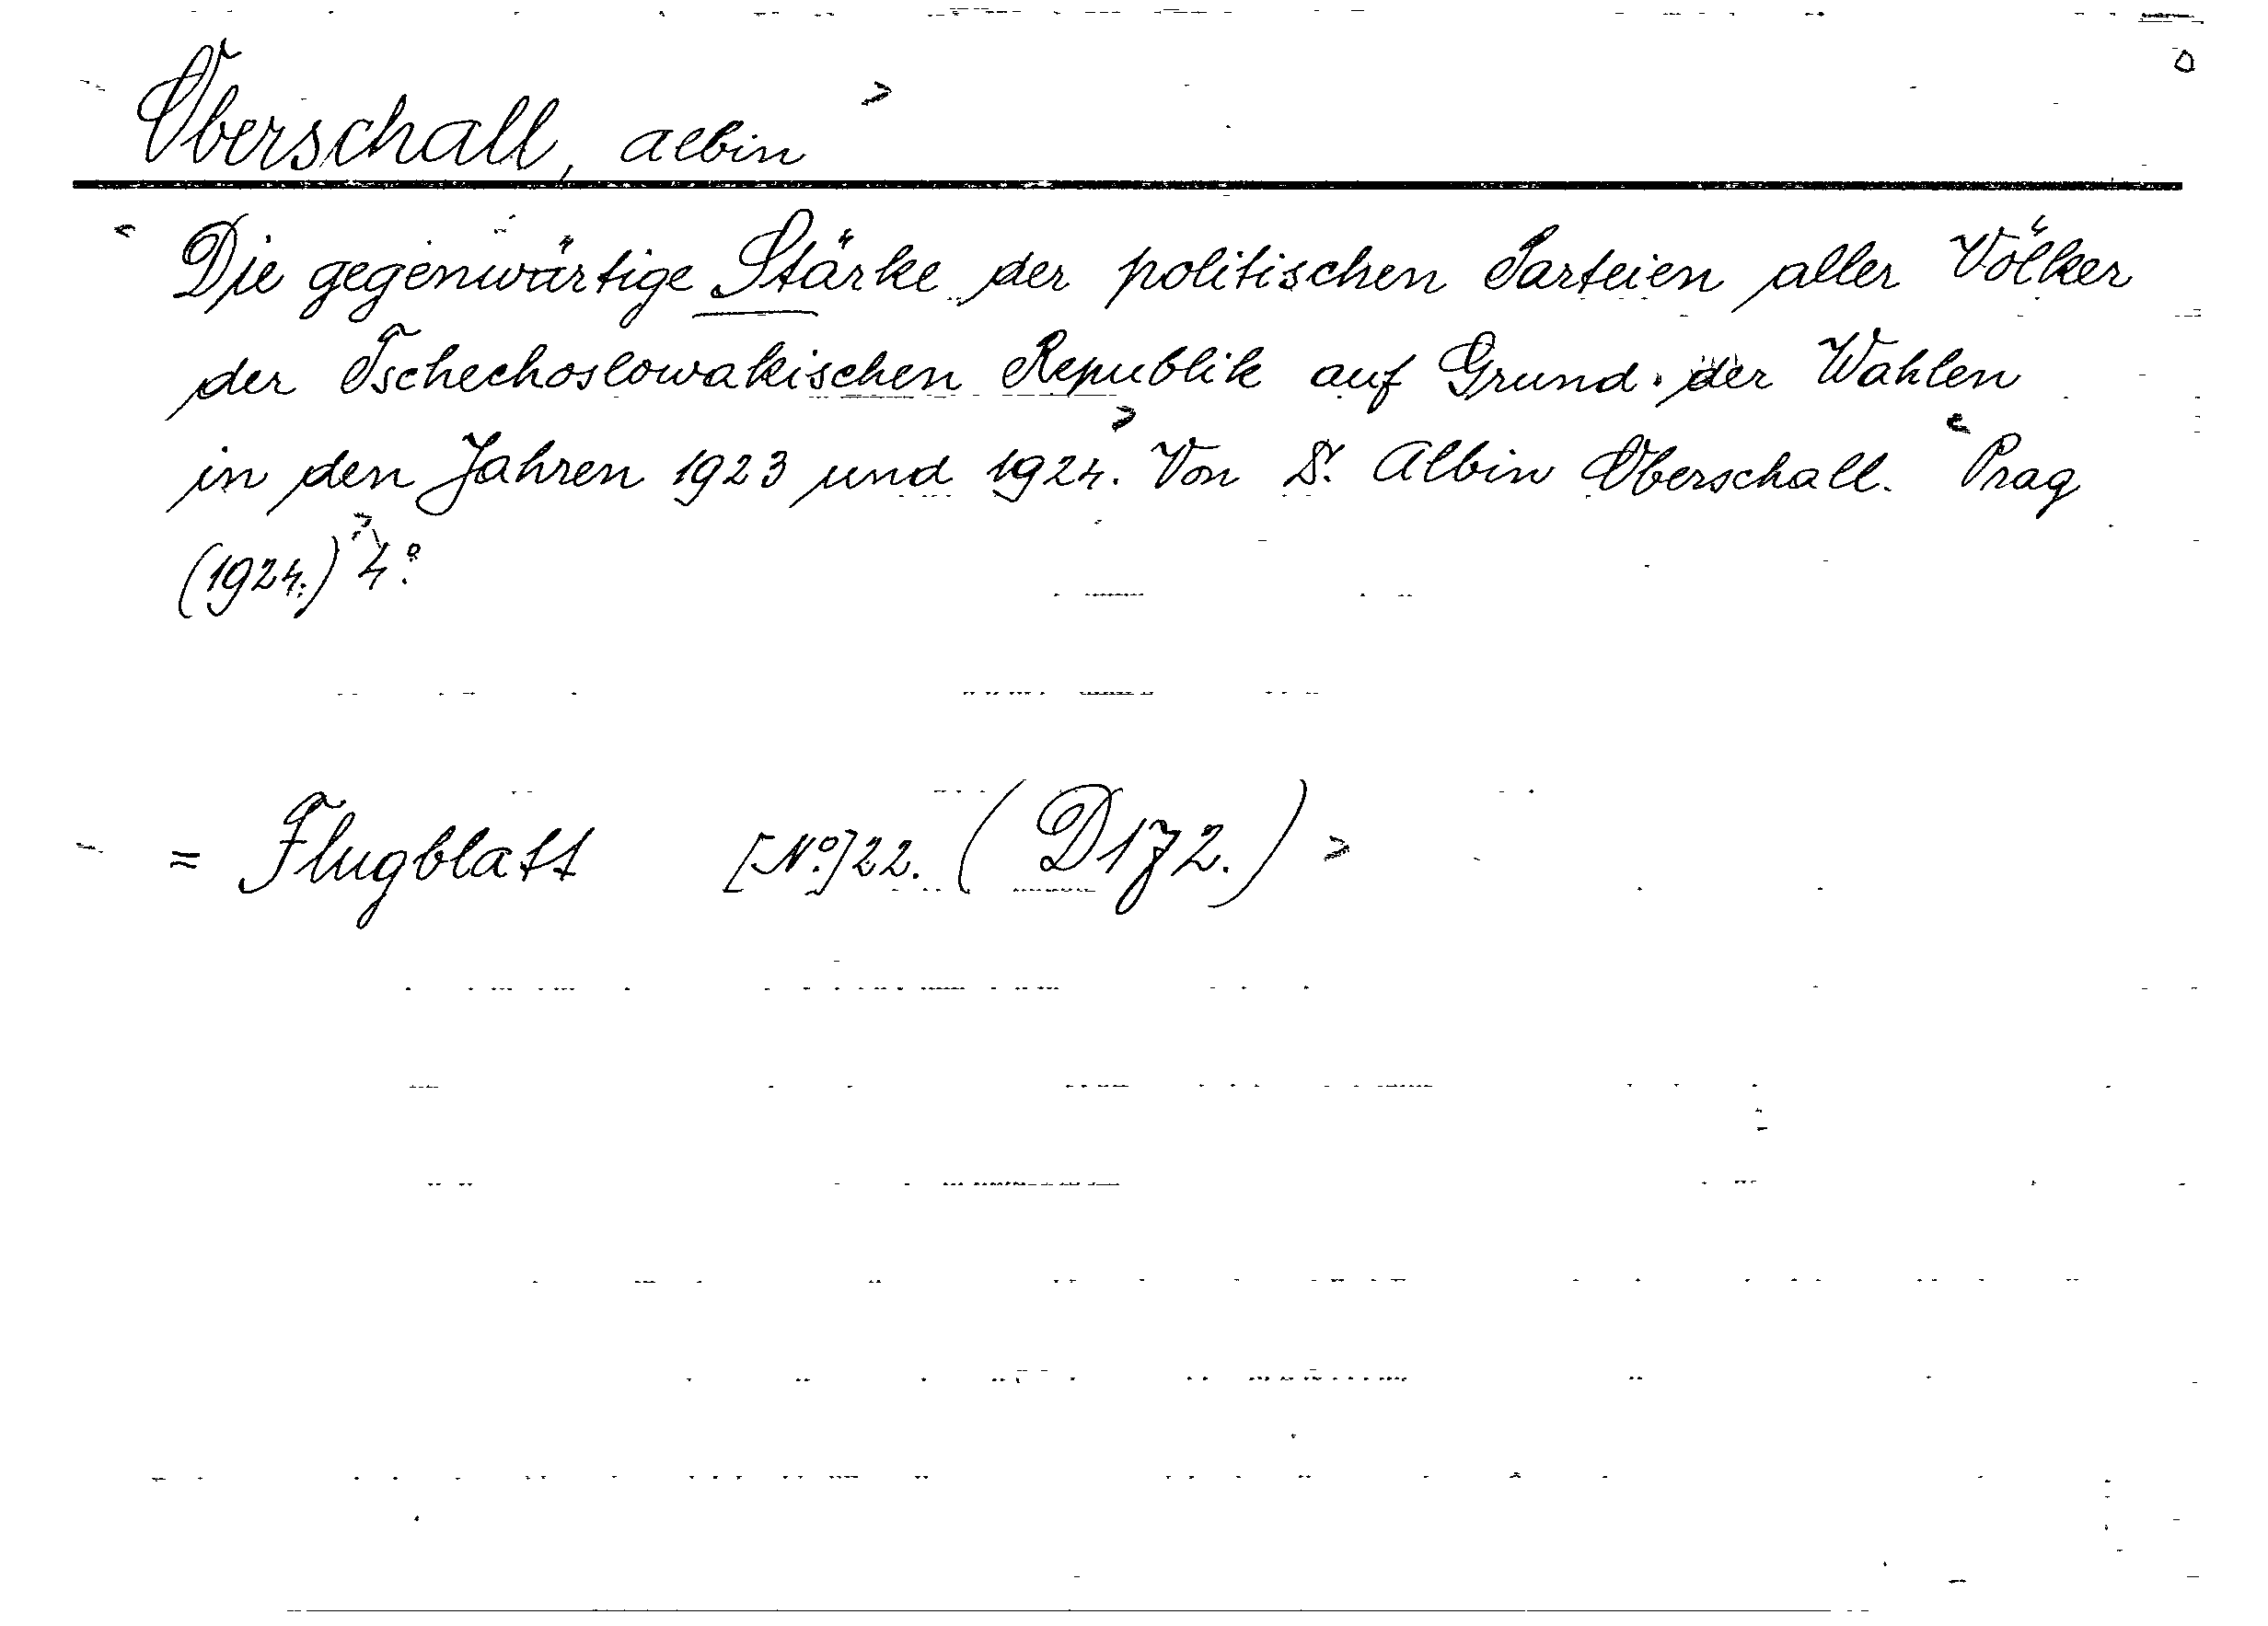 Oberschall, Albin
Die gegenwärtige Stärke der politischen Parteien aller Völker
der Tschechoslowakischen Republik auf Grund der Wahlen
in den Jahren 1923 und 1924. Von Dr. Albin Oberschall. Prag
(1924.) 4°.
= Flugblatt [No.] 22. (D172.)